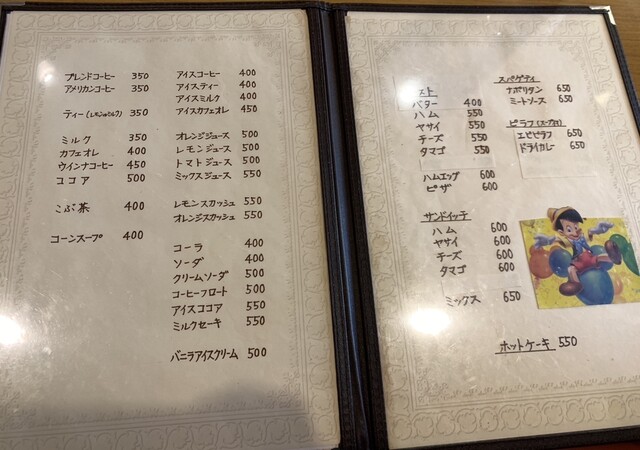 ブレンドコーヒー 350
アメリカンコーヒー 350
ティー(レモンorミルク) 350
ミルク 350
カフェオレ 400
ウインナコーヒー 450
ココア 500
こぶ茶 400
コーンスープ 400
アイスコーヒー 400
アイスティー 400
アイスミルク 400
アイスカフェオレ 450
オレンジジュース 500
レモンジュース 500
トマトジュース 500
ミックスジュース 550
レモンスカッシュ 550
オレンジスカッシュ 550
コーラ 400
ソーダ 400
クリームソーダ 500
コーヒーフロート 500
アイスココア 550
ミルクセーキ 550
バニラアイスクリーム 500
スト
バター 400
ハム 550
ヤサイ 550
チーズ 550
タマゴ 550
ハムエッグ 600
ピザ 600
サンドイッチ
ハム 600
ヤサイ 600
チーズ 600
タマゴ 600
ミックス 650
スパゲティ
ナポリタン 650
ミートソース 650
ピラフ(スープ付)
エビピラフ 650
ドライカレー 650
ホットケーキ 550